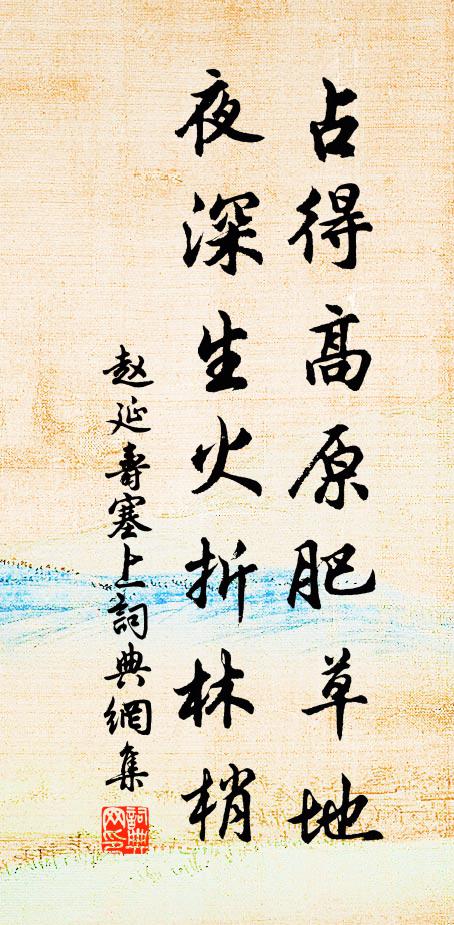 占得高原肥草地
夜深生火折林梢
赵延壽塞上詞典網集
詞典网印